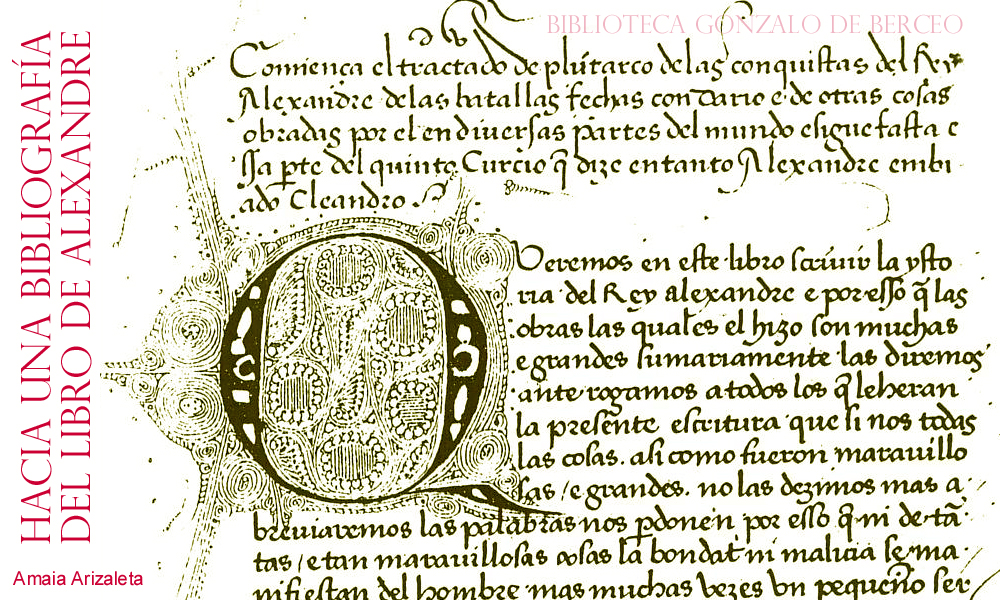 BIBLIOTECA GONZALO DE BERCEO
HACIA UNA BIBLIOGRAFÍA
DEL LIBRO DE ALEXANDRE
Amaia Arizaleta
Comiença el tractado de plutarco delas conquistas del Rey
Alexandre delas batallas fechas con Dario e de otras cosas
obradas por el en diuersas partes del mundo e sigue fasta e
ssa pte del quinto Curcio q̃ dize entanto Alexandre embi
ado Cleandro
Queremos en este libro scriuir la ysto
ria del Rey alexandre e por esso q̃ las
obras las quales el hizo son muchas
e grandes sumariamente las diremos
ante rogamos a todos los q̃ leheran
la presente escritura que si nos todas
las cosas. asi como fueron marauillo
sas / e grandes. no las dezimos mas a
breuiaremos las palabras nos pdonen por esso q̃ ni de tã
tas / e tan marauillosas cosas la bondat ni malicia se ma
nifiestan del hombre mas muchas vezes vn pequeño ser